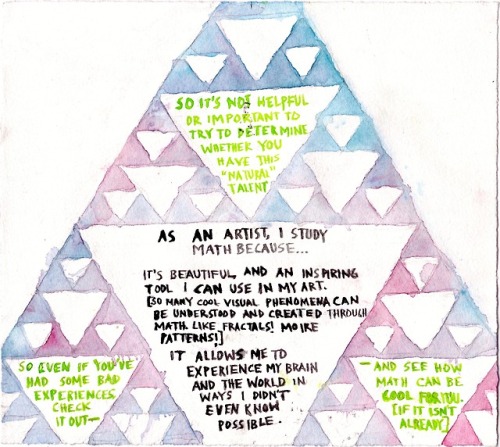 SO IT'S NOT HELPFUL
OR IMPORTANT TO
TRY TO DETERMINE
WHETHER YOU
HAVE THIS
"NATURAL"
TALENT
AS AN ARTIST, I STUDY
MATH BECAUSE...
IT'S BEAUTIFUL, AND AN INSPIRING
TOOL I CAN USE IN MY ART.
[SO MANY COOL VISUAL PHENOMENA CAN
BE UNDERSTOOD AND CREATED THROUGH
MATH. LIKE FRACTALS! MOIRE
PATTERNS!]
IT ALLOWS ME TO
EXPERIENCE MY BRAIN
AND THE WORLD IN
WAYS I DIDN'T
EVEN KNOW
POSSIBLE.
SO EVEN IF YOU'VE
HAD SOME BAD
EXPERIENCES
CHECK
IT OUT—
—AND SEE HOW
MATH CAN BE
COOL FOR YOU.
[IF IT ISN'T
ALREADY]